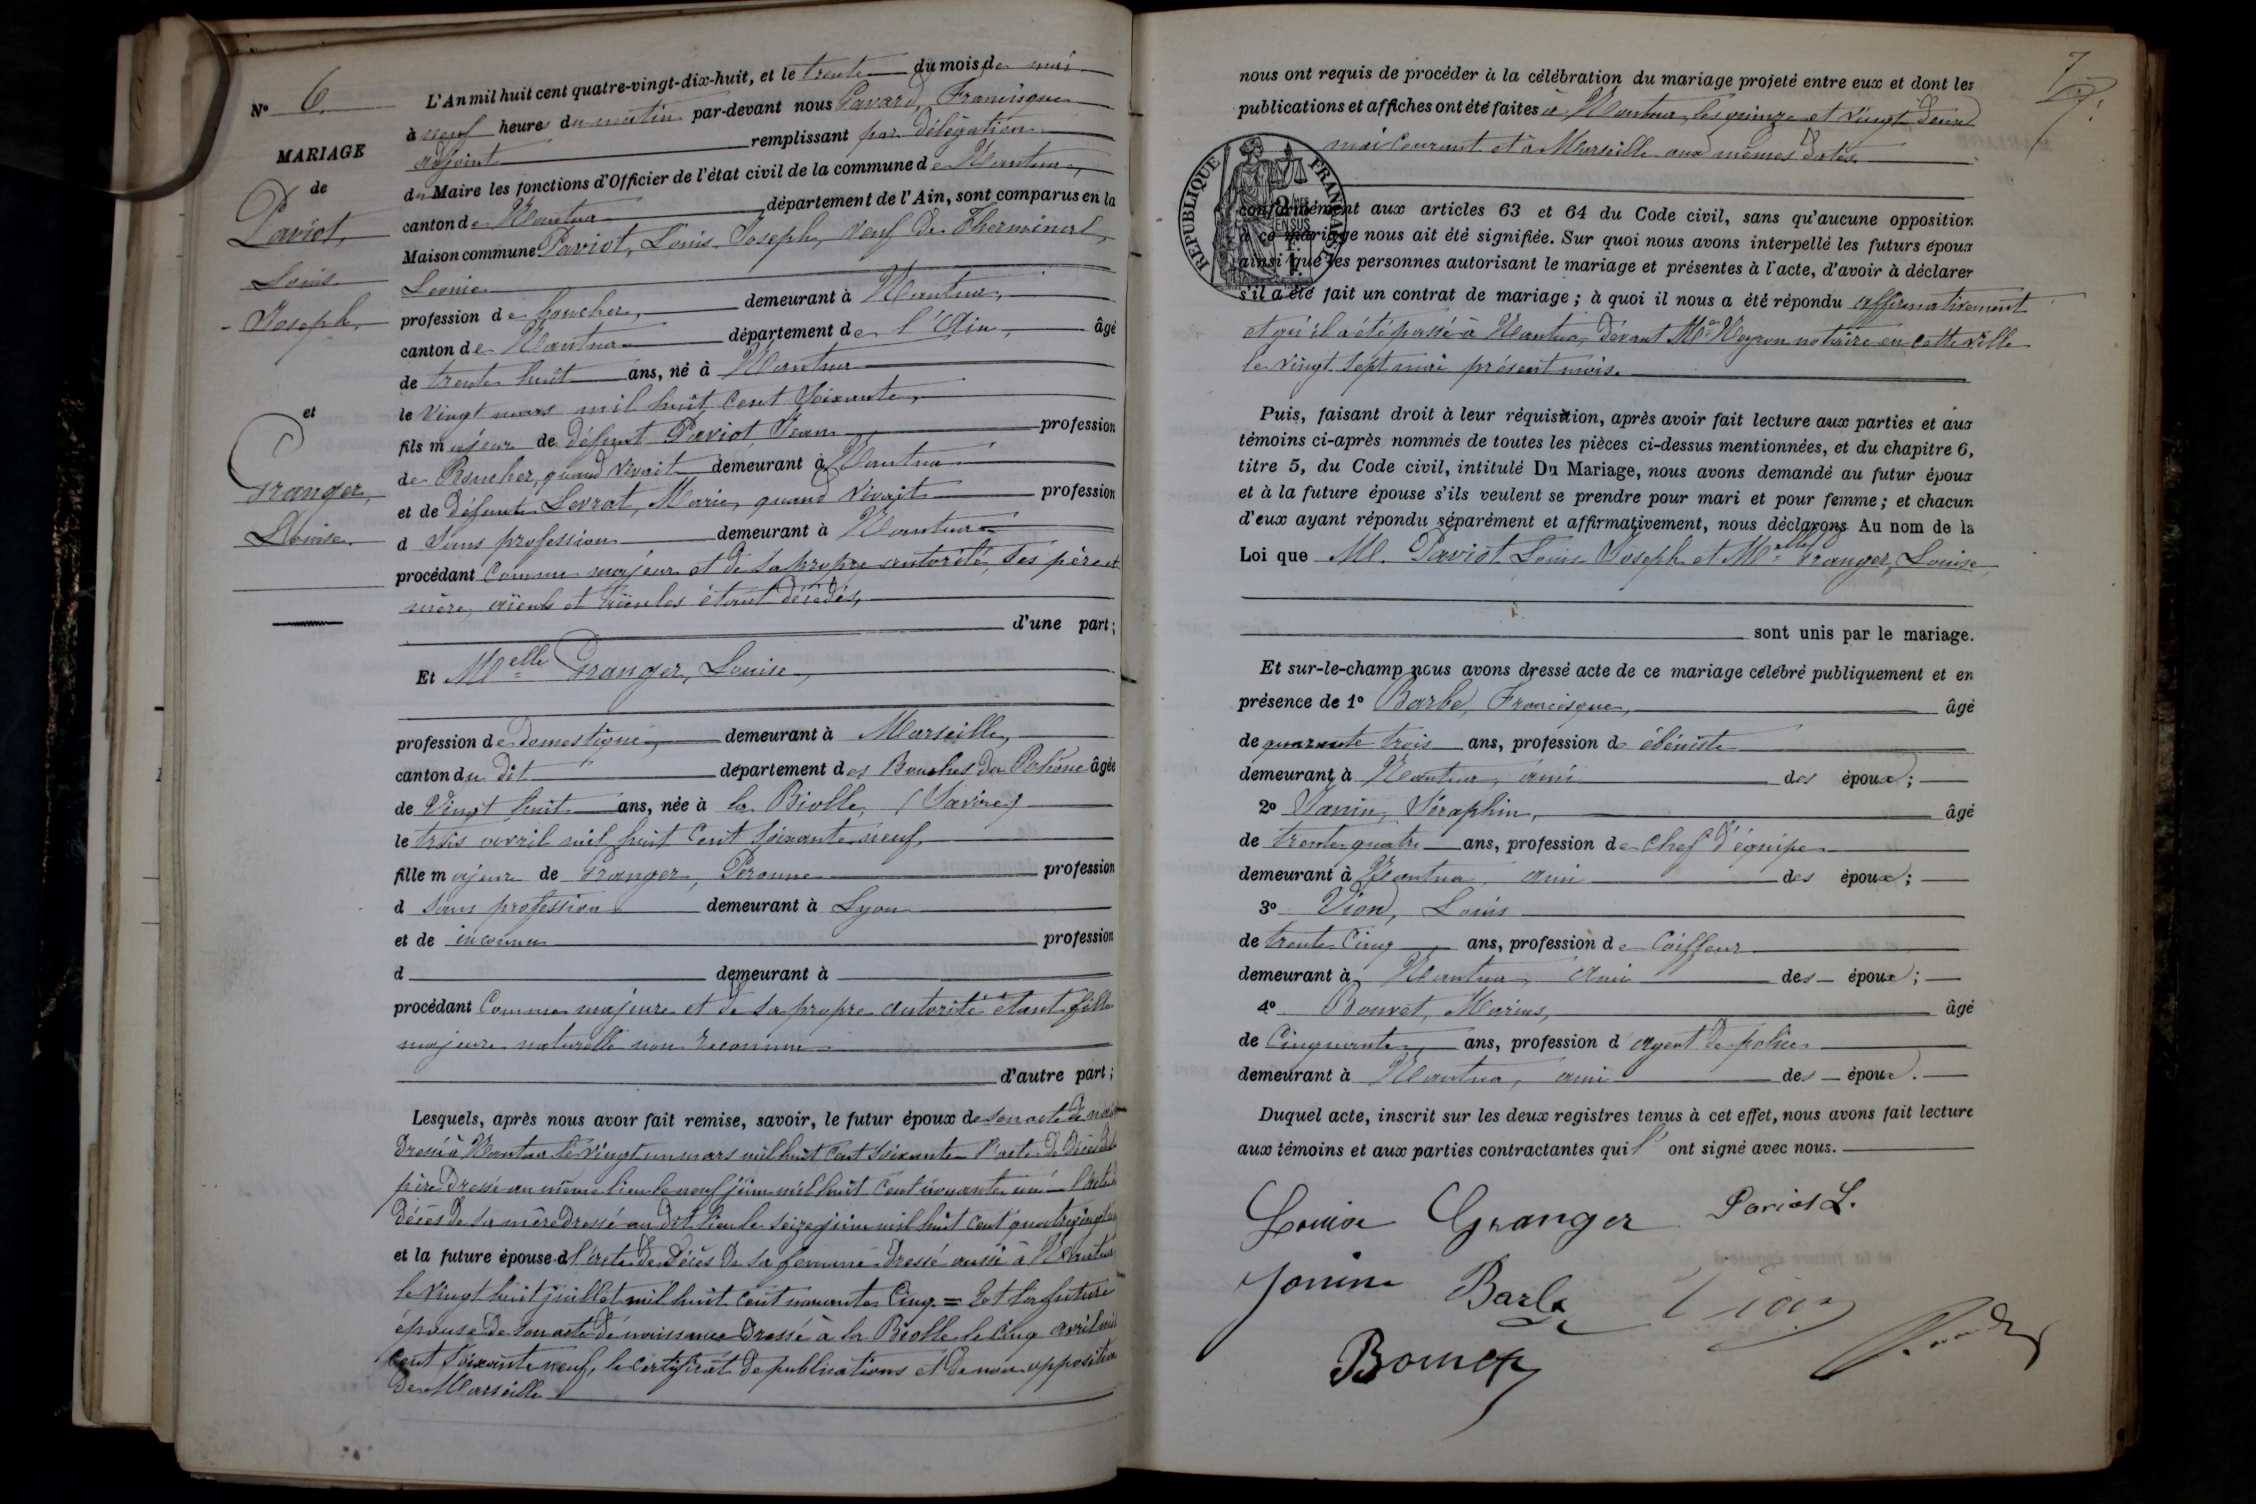 N° 6
MARIAGE
de
Paviot,
Louis
Joseph,
et
Granger,
Louise
L'An mil huit cent quatre-vingt-dix-huit, et le trente du mois de mai
à neuf heures du matin par-devant nous Gavard, Francisque
adjoint remplissant par délégation
du Maire les fonctions d'Officier de l'état civil de la commune de Nantua,
canton de Nantua département de l'Ain, sont comparus en la
Maison commune Paviot, Louis Joseph, veuf de Therminert,
Leonie
profession de boucher, demeurant à Nantua,
canton de Nantua département de l'Ain, âgé
de trente huit ans, né à Nantua
le vingt mars mil huit cent soixante,
fils majeur de défunt Paviot, Jean profession
de Boucher, quand vivait demeurant à Nantua
et de défunte Levrat, Marie, quand vivait profession
d sans profession demeurant à Nantua
procédant comme majeur et de sa propre autorité, ses père et
mère, aïeuls et aïeules étant décédés,
d'une part;
Et Melle Granger, Louise,
profession de domestique, demeurant à Marseille,
canton du dit département des Bouches du Rhône âgée
de Vingt huit ans, née à la Biolle, (Savoie)
le trois avril mil huit cent soixante neuf
fille majeure de Granger, Peronne profession
d sans profession demeurant à Lyon
et de inconnu profession
d demeurant à
procédant comme majeure et de sa propre autorité étant fille
majeure naturelle non reconnue
d'autre part;
Lesquels, après nous avoir fait remise, savoir, le futur époux de son acte de
Dressé à Nantua le vingt un mars mil huit cent soixante l'acte de décès de
père dressé au même lieu le neuf juin mil huit cent nonante un l'acte de
décès de sa mère dressé au dit lieu le seize juin mil huit cent quatre vingt
et la future épouse d l'acte de décès de sa femme dressé aussi à Nantua
le vingt huit juillet mil huit cent nonante cinq = Et la future
épouse de son acte de naissance dressé à la Biolle le cinq avril mil
cent soixante neuf, le certificat de publications et de non opposition
de Marseille
7
nous ont requis de procéder à la célébration du mariage projeté entre eux et dont les
publications et affiches ont été faites à Nantua les quinze et vingt deux
mai courant et à Marseille aux mêmes dates
RÉPUBLIQUE FRANÇAISE
conformément aux articles 63 et 64 du Code civil, sans qu'aucune opposition
à ce mariage nous ait été signifiée. Sur quoi nous avons interpellé les futurs époux
ainsi que les personnes autorisant le mariage et présentes à l'acte, d'avoir à déclarer
s'il a été fait un contrat de mariage; à quoi il nous a été répondu affirmativement
et qu'il a été passé à Nantua, devant Me Neyron notaire en cette ville
le vingt sept mai présent mois.
Puis, faisant droit à leur réquisition, après avoir fait lecture aux parties et aux
témoins ci-après nommés de toutes les pièces ci-dessus mentionnées, et du chapitre 6,
titre 5, du Code civil, intitulé Du Mariage, nous avons demandé au futur époux
et à la future épouse s'ils veulent se prendre pour mari et pour femme; et chacun
d'eux ayant répondu séparément et affirmativement, nous déclarons Au nom de la
Loi que M. Paviot Louis Joseph et Melle Granger, Louise
sont unis par le mariage.
Et sur-le-champ nous avons dressé acte de ce mariage célébré publiquement et en
présence de 1° Barbe, Francisque, âgé
de quarante trois ans, profession d ébéniste
demeurant à Nantua, ami des époux;
2° Janin, Séraphin, âgé
de trente quatre ans, profession de chef d'équipe
demeurant à Nantua ami des époux;
3° Viond, Louis
de trente cinq ans, profession de Coiffeur
demeurant à Nantua, ami des époux;
4° Bouvet, Marius, âgé
de Cinquante ans, profession d'agent de police
demeurant à Nantua, ami des époux.
Duquel acte, inscrit sur les deux registres tenus à cet effet, nous avons fait lecture
aux témoins et aux parties contractantes qui l'ont signé avec nous.
Louise Granger Paviot L.
Janin Barbe Viond
Bouvet